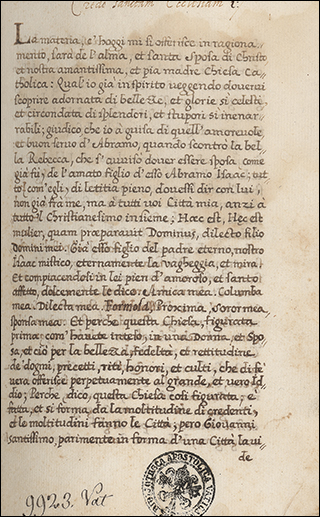 Crede sanctam Ecclesiam
La materia, c'hoggi mi si offerisce in ragiona-
mento, sarà de l'alma, et santa sposa di Christo
et nostra amantissima, et pia madre Chiesa Ca-
tholica: Qual'io già in spirito veggendo dovervi
scoprire adornata di bellezze, et glorie sì celesti,
et circondata di splendori, et stupori sì inenar-
rabili; giudico, che io à guisa di quell'amorevole,
et buon servo d'Abramo, quando scontrò la bel-
la Rebecca, che s'avvisò dover essere sposa come
già fù, de l'amato figlio d'esso Abramo Isaac; tut
to (com'egli) di letitia pieno, dovessi dir con lui,
non già frà me, ma à tutti voi Città mia, anzi à
tutto il Christianesimo insieme; Hæc est, Hęc est
mulier, quam præparavit Dominus, dilecto filio
domini mei. Già esso figlio del padre eterno, nostro
Isaac mistico, eternamente la vagheggia, et mira.
et compiacendosi in lei pien d'amoroso, et santo
affetto, dolcemente le dice: Amica mea. Columba
mea. Dilecta mea. Formosa, Proxima, soror mea,
sponsa mea: Et perche questa Chiesa, figurata
prima com'havete inteso, in una Donna, et Spo-
sa, et ciò per la bellezza, Fedeltà, et rettitudine
de' dogmi, precetti, riti, honori, et culti, che di sè
vera offerisce perpetuamente al grande, et vero Id
dio; Perche, dico, questa Chiesa così figurata; è
fatta, et si forma, da la moltitudine di credenti,
et le moltitudini fanno le Città; però Giovanni
santissimo, parimente in forma d'una Città la vi-
de
9923. Vat
BIBLIOTECA APOSTOLICA VATICANA